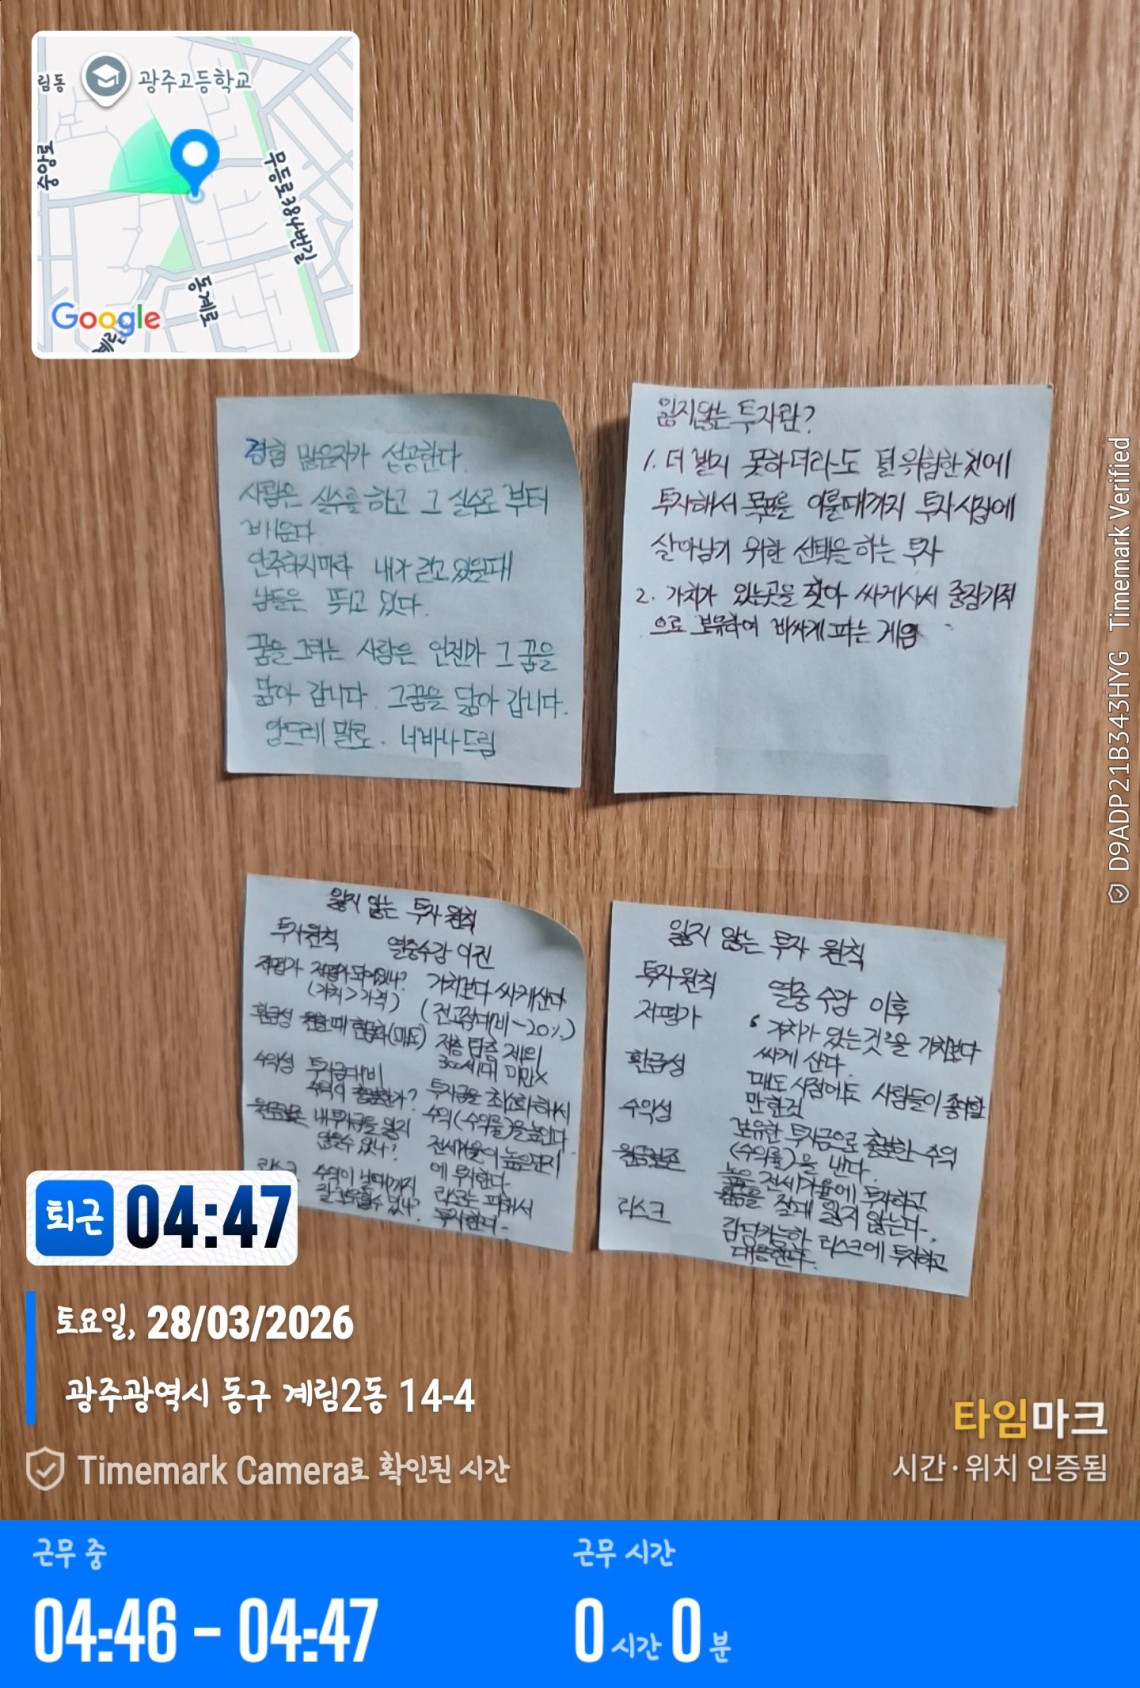 림동
광주고등학교
중앙로
무등로384번길
동계로
Google
경험 많은자가 성공한다.
사람은 실수를 하고 그 실수로 부터
배운다
안주하지마라 내가 걷고 있을때
남들은 뛰고 있다.
꿈을 그리는 사람은 언젠가 그 꿈을
닮아 갑니다. 그꿈을 닮아 갑니다.
앙드레 말로. 너바나드림
잃지않는 투자란?
1. 더 벌지 못하더라도 덜 위험한것에
투자해서 목표를 이룰때까지 투자시장에
살아남기 위한 선택을 하는 투자
2. 가치가 있는곳을 찾아 싸게사서 중장기적
으로 보유하여 비싸게 파는 게임
잃지 않는 투자 원칙
투자원칙 열중수강 이전
저평가 저평가 되어있나? 가치보다 싸게산다
(가치>가격) (전고점대비 -20%)
환금성 현금화(매도) 저층 탑층 제외
300세대 미만X
수익성 투자금대비 투자금을 최소화해서
수익이 충분한가? 수익(수익률)을 높인다.
원금보존 내 투자금을 잃지 전세가율이 높은단지
않을수 있나? 에 투자한다.
리스크 수익이 날때까지 리스크는 피해서
잘 보유할수 있나? 투자한다.
잃지 않는 투자 원칙
투자원칙 열중 수강 이후
저평가 "가치가 있는것"을 가치보다
싸게 산다.
환금성 매도 시점에도 사람들이 좋아할
만한것
수익성 보유한 투자금으로 충분한 수익
(수익률)을 낸다.
원금보존 높은 전세가율에 투자하고
절대 잃지 않는다.
리스크 감당가능한 리스크에 투자하고
대응한다.
D9ADP21B343HYG Timemark Verified
퇴근 04:47
토요일, 28/03/2026
광주광역시 동구 계림2동 14-4
Timemark Camera로 확인된 시간
타임마크
시간·위치 인증됨
근무 중 근무 시간
04:46 - 04:47 0시간 0분